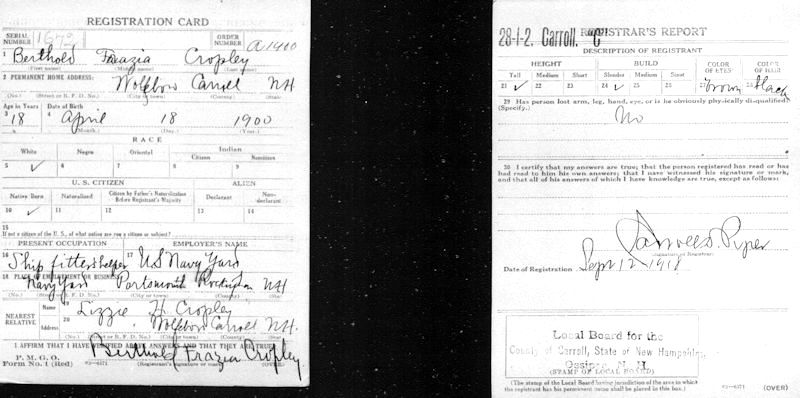 REGISTRATION CARD
SERIAL NUMBER 1672 ORDER NUMBER A1900
1 Berthold Frazia Cropley
(First name) (Middle
2 PERMANENT HOME ADDRESS:
Wolfebow Carroll NH
(No.) (Street or R. F. D. No.) (City or town) (County) (State)
Age in Years Date of Birth
3 18 4 April 18 1900
(Month.) (Day.) (Year.)
RACE
White Negro Oriental Indian
Citizen Noncitizen
5 ✓ 6 7 8 9
U. S. CITIZEN ALIEN
Native Born Naturalized Citizen by Father's Naturalization Before Registrant's Majority Declarant Non-declarant
10 ✓ 11 12 13 14
15
If not a citizen of the U. S., of what nation are you a citizen or subject?
PRESENT OCCUPATION EMPLOYER'S NAME
16 Ship fitters helper 17 US Navy Yard
18 PLACE OF EMPLOYMENT OR BUSINESS
Navy Yard Portsmouth Rockingham NH
(No.) (Street or R. F. D. No.) (City or town) (County) (State)
NEAREST RELATIVE Name 19 Lizzie H. Cropley
Address 20 Wolfebow Carroll NH.
(No.) (Street or R. F. D. No.) (City or town) (County) (State)
I AFFIRM THAT I HAVE VERIFIED ABOVE ANSWERS AND THAT THEY ARE TRUE
Berthold Frazia Cropley
P. M. G. O.
Form No. 1 (Red) (Registrant's signature or mark) (OVER)
28-1-2. Carroll. "C"
REGISTRAR'S REPORT
DESCRIPTION OF REGISTRANT
HEIGHT BUILD COLOR OF EYES COLOR OF HAIR
Tall Medium Short Slender Medium Stout
21 ✓ 22 23 24 ✓ 25 26 27 brown 28 black
29 Has person lost arm, leg, hand, eye, or is he obviously physically disqualified?
(Specify.) No
30 I certify that my answers are true; that the person registered has read or has
had read to him his own answers; that I have witnessed his signature or mark,
and that all of his answers of which I have knowledge are true, except as follows:
Piper
(Signature of Registrar)
Date of Registration Sept 12 - 1918
Local Board for the
County of Carroll, State of New Hampshire,
Ossipee, N. H.
(STAMP OF LOCAL BOARD)
(The stamp of the Local Board having jurisdiction of the area in which
the registrant has his permanent home shall be placed in this box.) 03-6171 (OVER)